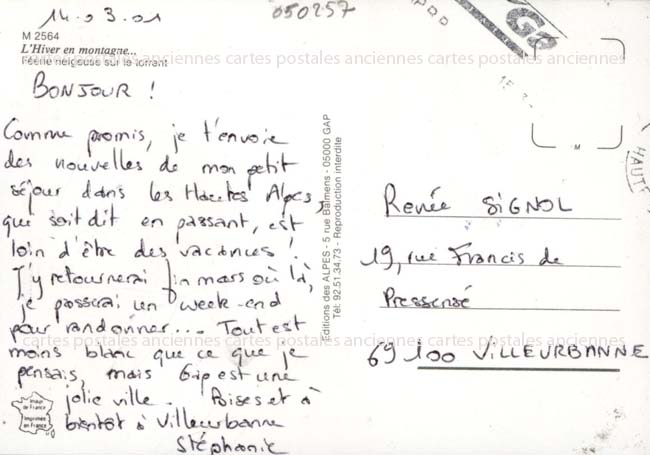 14.03.01
050257
M 2564
L'Hiver en montagne...
Féérie neigeuse sur le torrent
anciennes cartes postales anciennes cartes postales anciennes cartes postales anciennes
BONJOUR !
Comme promis, je t'envoie
des nouvelles de mon petit
séjour dans les Hautes Alpes,
qui soit dit en passant, est
loin d'être des vacances !
J'y retournerai fin mars où là,
je passerai un week-end
pour randonner... Tout est
moins blanc que ce que je
pensais, mais Gap est une
jolie ville. Bises et à
bientôt à Villeurbanne
Stéphanie
Image de France
Imprimée en France
Editions des ALPES - 5 rue Balmens - 05000 GAP
Tél: 92.51.34.73 - Reproduction interdite
GAP
HAUTE
M
Renée SIGNOL
19, rue Francis de
Pressensé
69100 VILLEURBANNE
cartes postales anciennes cartes postales anciennes cartes postales anciennes